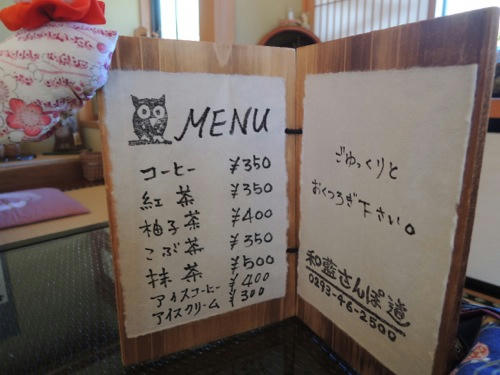 MENU
コーヒー ¥350
紅茶 ¥350
柚子茶 ¥400
こぶ茶 ¥350
抹茶 ¥500
アイスコーヒー ¥400
アイスクリーム ¥300
ごゆっくりと
おくつろぎ下さい。
和藍さんぽ道
0293-46-2500